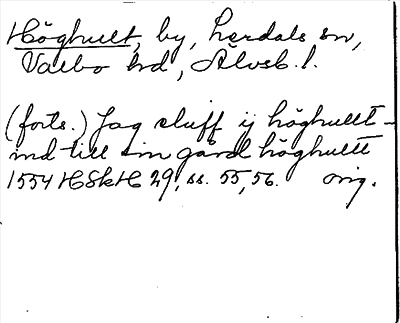 Höghult, by, Lerdals sn,
Valbo hd, Älvsb. l.
(forts.) Jag eluff ij höghullt -
ind till sin gård höghultt
1554 HSkH 29, ss. 55, 56. orig.